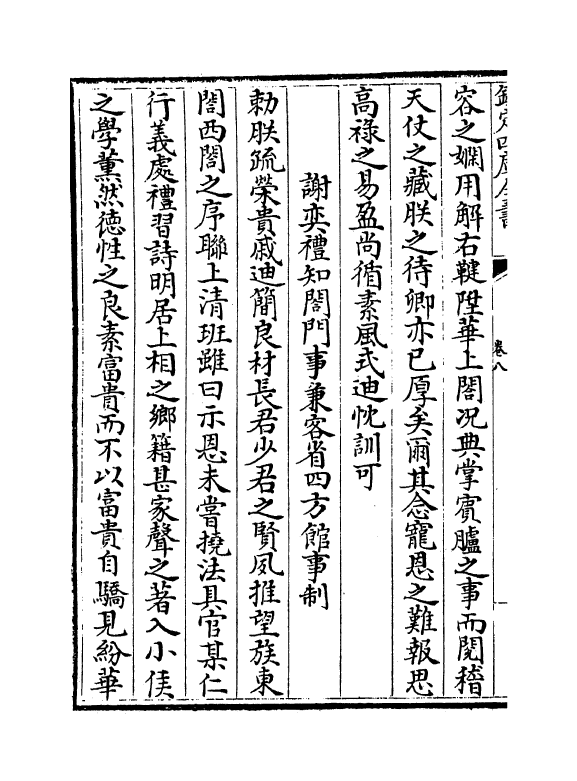 欽定四庫全書
卷八
容之嫻用解右鞬陞華上閤况典掌賓臚之事而閱稽
天仗之藏朕之待卿亦已厚矣爾其念寵恩之難報思
高禄之易盈尚循素風式迪忱訓可
謝奕禮知閤門事兼客省四方館事制
勅朕䟽榮貴戚迪簡良材長君少君之賢夙推望族東
閤西閤之序聯上清班雖曰示恩未嘗撓法具官某仁
行義處禮習詩明居上相之鄉籍甚家聲之著入小侯
之學薫然徳性之良素富貴而不以富貴自驕見紛華